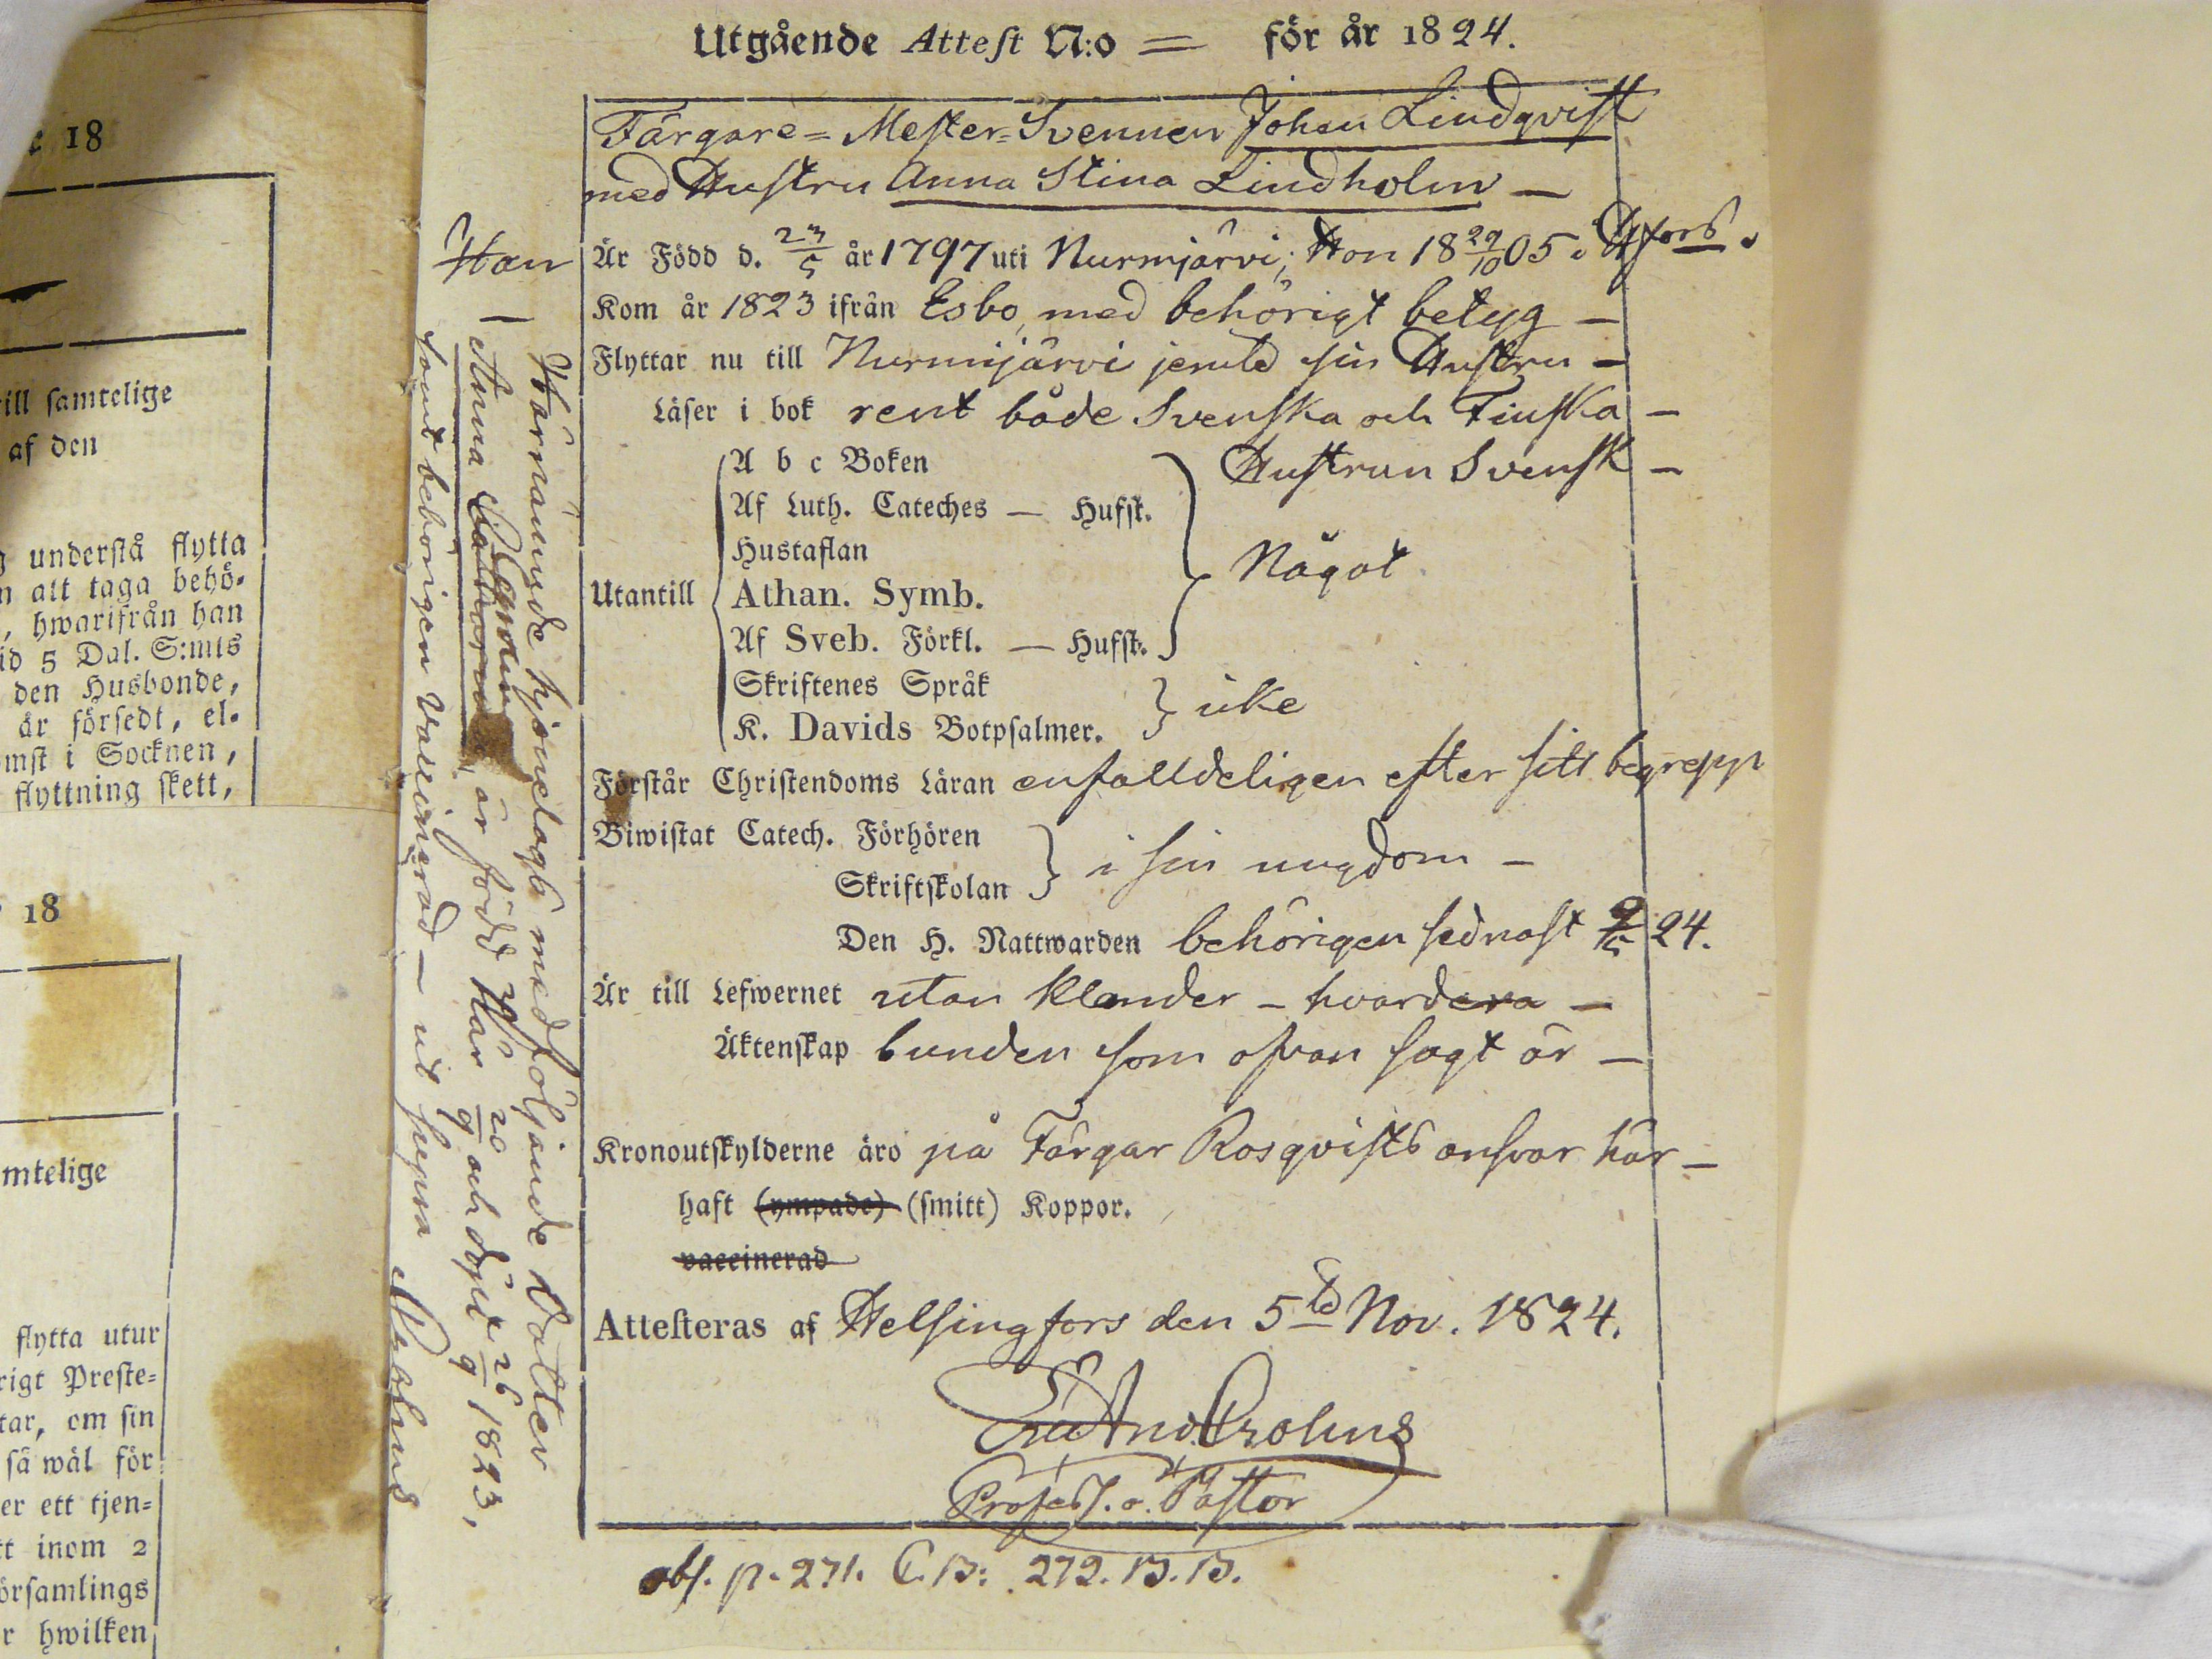 Utgående Attest N:o = för år 1824.
Färgare=Mester=Svennen Johan Lindqvist
med Hustru Anna Stina Lindholm —
Han Är Född d. 23/5 år 1797 uti Nurmjärvi; Hon 18 29/10 05 i H:fors.
Kom år 1823 ifrån Esbo, med behörigt betyg —
Flyttar nu till Nurmijärvi jemte sin Hustru —
Läser i bok rent både Svenska och Finska —
Hustrun Svensk —
Utantill
A b c Boken
Af Luth. Cateches — Hufst.
Hustaflan
Athan. Symb.
Af Sveb. Förkl. — Hufst.
Något
Skriftenes Språk
K. Davids Botpsalmer.
icke
Förstår Christendoms Läran enfalldeligen efter sitt begrepp
Biwistat Catech. Förhören
Skriftskolan
i sin ungdom —
Den H. Nattwarden behörigen sednast 9/5 24.
Är till Lefwernet utan klander — hvardera —
Äktenskap bunden som ofvan sagt är —
Kronoutskylderne äro på Färgar Rosqvists ansvar här —
haft (ympade) (smitt) Koppor.
vaccinerad
Attesteras af Helsingfors den 5te Nov. 1824.
And. Crohns
Profess. o. Pastor
obs. p. 271. C.B: 272. B.B.
Härnämnde hjonelags medföljande Dotter
Anna är född Här 20/9 och döpt 26/9 1823,
samt behörigen Vaccinerad — ut supra Crohns
18
till samtelige
af den
understå flytta
att taga behö-
, hwarifrån han
5 Dal. S:mts
den Husbonde,
är försedt, el-
i Socknen,
flyttning skett,
18
mtelige
flytta utur
rigt Preste-
tar, om sin
så wäl för
er ett tjen-
inom 2
örsamlings
r hwilken